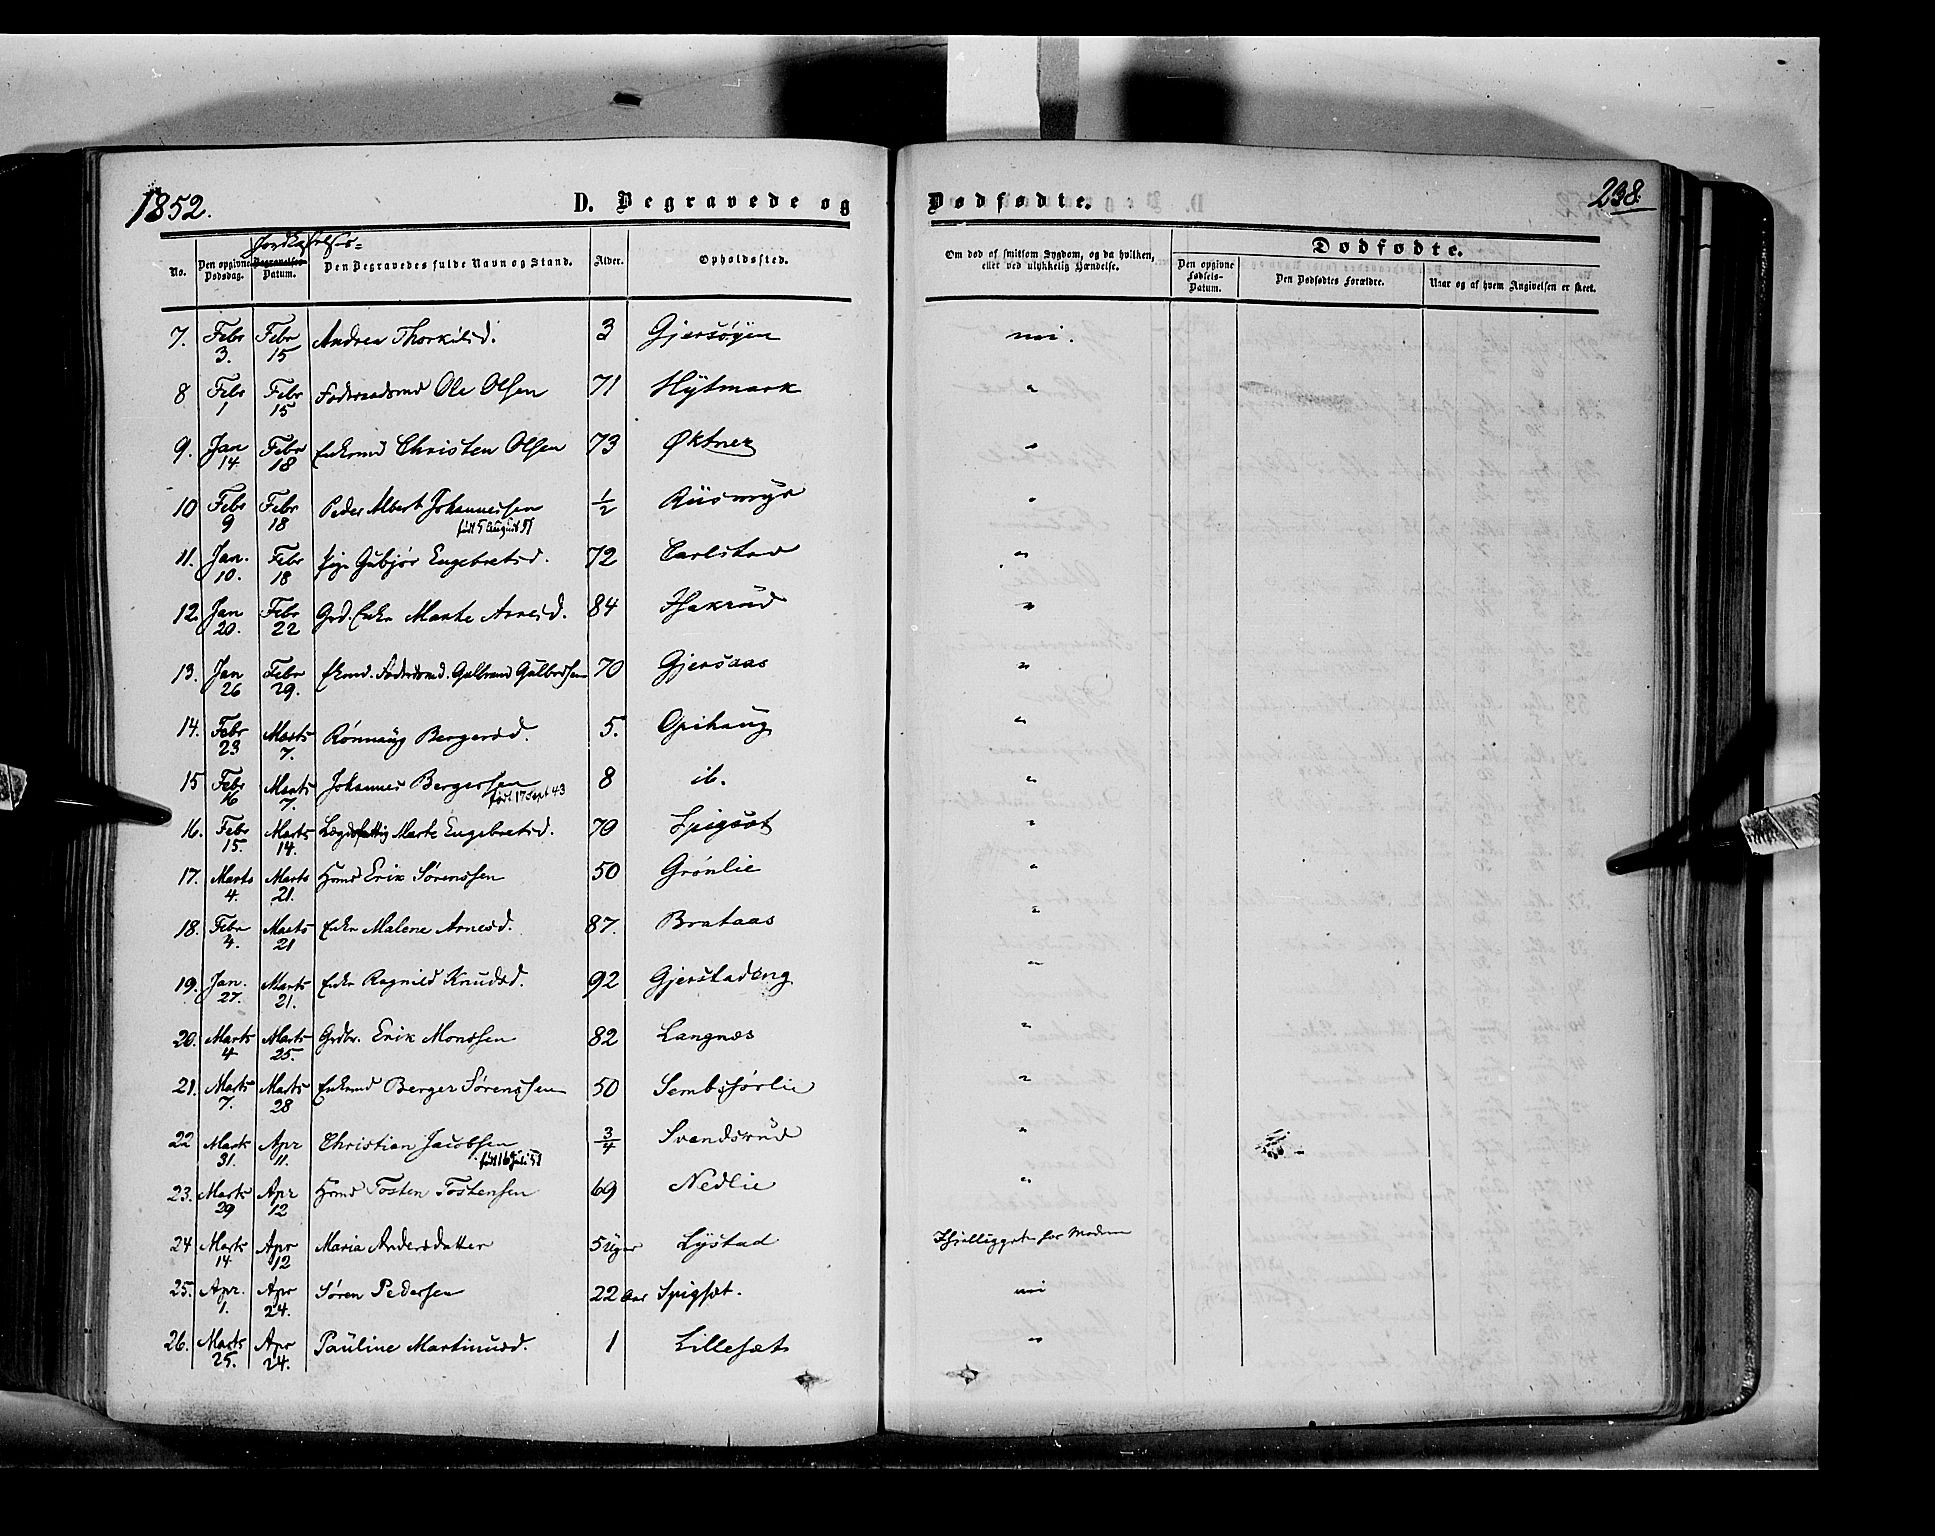 1852. D. Begravede og Dødfødte. 238.
Jordkastelses-
No. Den opgivne Dødsdag. Begravelses Datum. Den Begravedes fulde Navn og Stand. Alder. Opholdssted. Om død af smitsom Sygdom, og da hvilken, eller ved ulykkelig Hændelse. Dødfødte.
Den opgivne Fødsels-Datum. Den Dødfødtes Forældre. Naar og af hvem Angivelsen er skeet.
7. Febr 3. Febr 15 Andrea Thorkilsd. 3 Gjersøyen nei.
8 Febr 1 Febr 15 Føderaadsmd Ole Olsen 71 Hytmark "
9. Jan 14. Febr 18 Enkemd Christen Olsen 73 Øktner "
10 Febr 9 Febr 18 Peder Albert Johannessen 1/2 Riismyr "
født 5 August 51
11. Jan. 10. Febr 18 Pige Gubjør Engebretsd. 72 Carlstad "
12. Jan 20. Febr 22 Grd. Enke Marte Arnesd. 84 Hakrud "
13. Jan 26 Febr 29. Føderdsmd. Gulbrand Gulbrdsen 70 Gjersaas "
14. Febr 23 Marts 7. Rønnaug Bergersd. 5. Opihaug "
15 Febr 16 Marts 7. Johannes Bergersen 8 ib. "
født 17 Sept 43
16. Febr 15. Marts 14. Lægdsfattig Marte Engebretsd. 70 Spigsæt "
17. Marts 4. Marts 21. Hmd Erik Sørenssen 50 Grønlie "
18. Febr 4. Marts 21 Enke Malene Arnesd. 87. Brataas "
19. Jan. 27. Marts 21. Enke Ragnild Knudsd. 92 Gjerstadeng "
20. Marts 4 Marts 25. Grdbr. Erik Monssen 82 Langnæs "
21. Marts 7. Marts 28 Enkemd Berger Sørenssen 50 Sembsførlie "
22 Marts 31. Apr 11. Christian Jacobsen 3/4 Svendsrud "
født 16 Juli 51
23. Marts 29 Apr 12 Hmd Tosten Tostensen 69 Nedlie "
24 Marts 14 Apr 12 Maria Andersdatter 5 Uger Lystad Ihjelligget for Modren
25. Apr. 1. Apr 24. Søren Pedersen 22 Aar Spigsæt. nei
26. Marts 25. Apr 24. Pauline Martinusd. 1 Lillesæt "